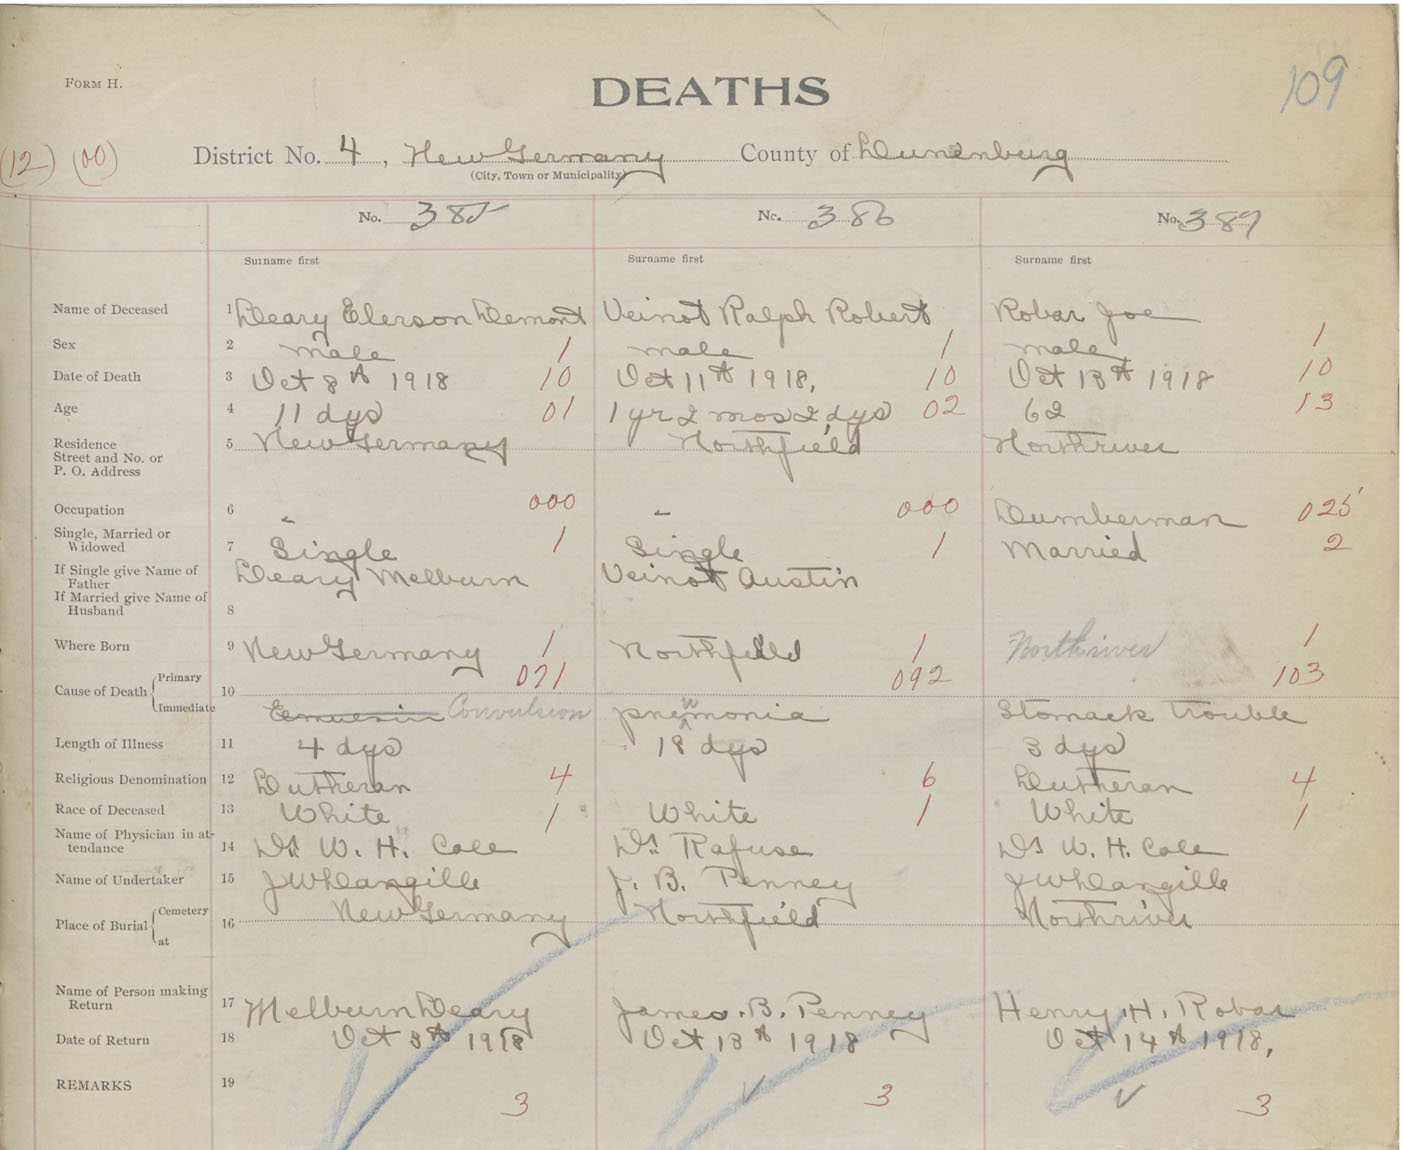 FORM H.
DEATHS
109
(12) (00)
District No. 4, New Germany County of Lunenburg
(City, Town or Municipality)
No. 385 No. 386 No. 387
Surname first Surname first Surname first
Name of Deceased 1 Leary Elerson Lemont Veinot Ralph Robert Robar Joe
Sex 2 male 1 male 1 male 1
Date of Death 3 Oct 8th 1918 10 Oct 11th 1918, 10 Oct 13th 1918 10
Age 4 11 dys 01 1 yr 2 mos 2 dys 02 62 13
Residence 5 New Germany Northfield Northriver
Street and No. or
P. O. Address
Occupation 6 - 000 - 000 Lumberman 025
Single, Married or
Widowed 7 Single 1 Single 1 Married 2
If Single give Name of
Father Leary Melburn Veinot Austin
If Married give Name of
Husband 8
Where Born 9 New Germany 1 Northfield 1 Northriver 1
Cause of Death Primary 10 071 092 103
Immediate Convulsion pneumonia Stomack trouble
Length of Illness 11 4 dys 18 dys 3 dys
Religious Denomination 12 Lutheran 4 6 Lutheran 4
Race of Deceased 13 White 1 White 1 White 1
Name of Physician in at-
tendance 14 Dr. W. H. Cole Dr. Rafuse Dr W. H. Cole
Name of Undertaker 15 J W Langille J. B. Penney J W Langille
Place of Burial Cemetery 16 New Germany Northfield Northriver
at
Name of Person making
Return 17 Melburn Leary James. B. Penney Henry H. Robar
Date of Return 18 Oct 8th 1918 Oct 13th 1918 Oct 14th 1918,
REMARKS 19 3 3 3